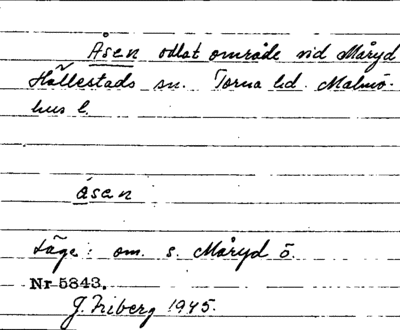 Åsen odlat område vid Måryd
Hällestads sn. Torna hd. Malmö-
hus l.
åsen
Läge: om. s. Måryd ö.
Nr 5843.
J. Friberg 1945.